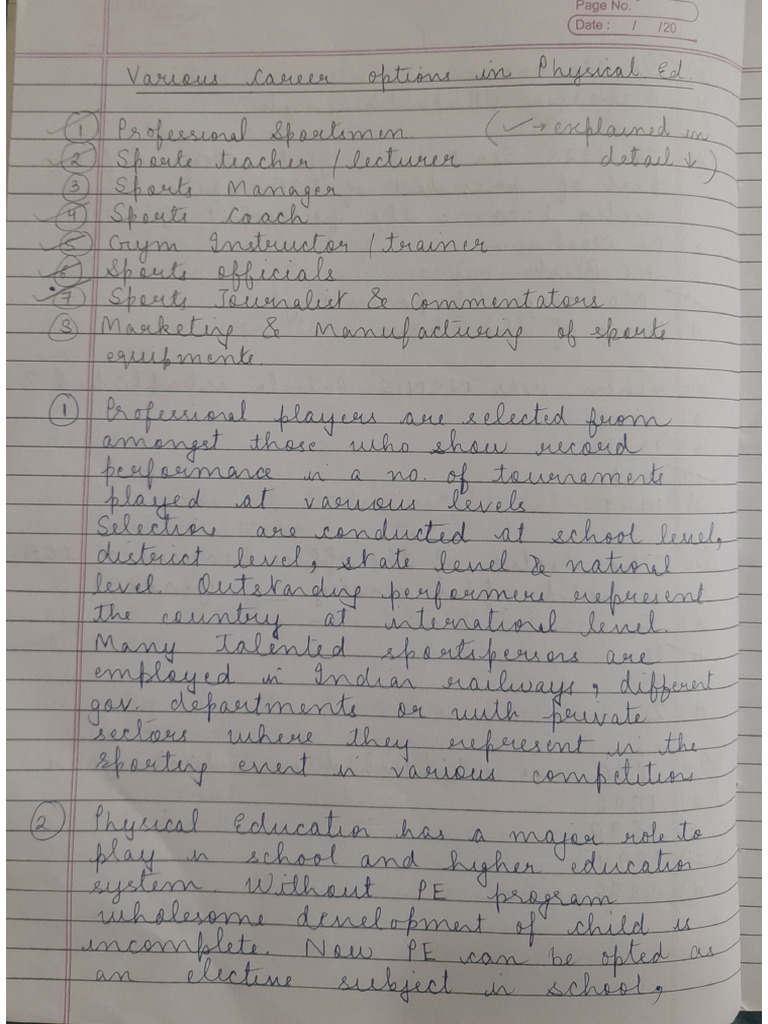 Page No.
Date : / /20
Various career options in Physical Ed.
① Professional Sportsmen. (✓→ explained in
② Sports teacher / lecturer detail ↓)
③ Sports Manager
④ Sports Coach
⑤ Gym Instructor / trainer
⑥ Sports officials
⑦ Sports Journalist & commentators
⑧ Marketing & Manufacturing of sports
equipments.
① Professional players are selected from
amongst those who show record
performance in a no. of tournaments
played at various levels.
Selections are conducted at school level,
district level, state level & national
level. Outstanding performers represent
the country at international level.
Many Talented sportspersons are
employed in Indian railways, different
gov. departments or with private
sectors where they represent in the
sporting event in various competition
② Physical Education has a major role to
play in school and higher education
system. Without PE program
wholesome development of child is
incomplete. Now PE can be opted as
an elective subject in school,